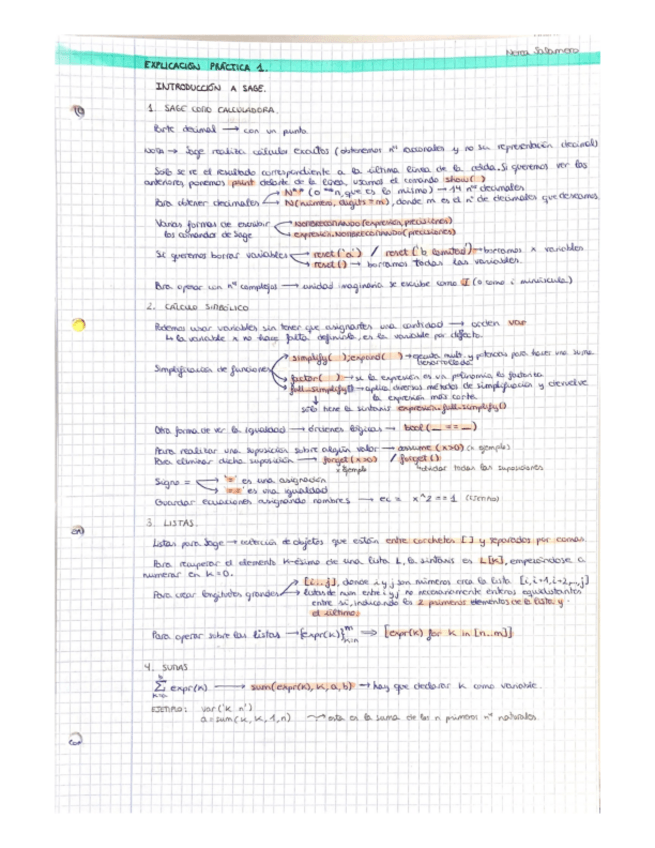 Nerea Salamero
EXPLICACIÓN PRÁCTICA 1.
INTRODUCCIÓN A SAGE.
1. SAGE COMO CALCULADORA.
Parte decimal → con un punto.
NOTA → Sage realiza cálculos exactos (obtenemos nº racionales y no su representación decimal)
Solo se ve el resultado correspondiente a la última línea de la celda. Si queremos ver las
anteriores, ponemos print delante de la línea, usamos el comando show( )
Para obtener decimales → N(número, digits = m), donde m es el nº de decimales que deseamos.
que es lo mismo) → 14 nº decimales
Varias formas de escribir los comandos de Sage → NOMBRECOMANDO(expresión, precisiones)
expresión.NOMBRECOMANDO(precisiones)
Si queremos borrar variables → reset('a') / reset('b → borramos variables
reset() → borramos todas las variables.
Para operar con nº complejos → unidad imaginaria se escribe como I (o como i minúscula)
2. CÁLCULO SIMBÓLICO
Podemos usar variables sin tener que asignarles una cantidad → orden var
↳ la variable x no hace falta definirla, es la variable por defecto.
Simplificación de funciones → simplify( ); expand( ) → mult. y potencias para hacer una suma
factor( ) → si la expresión es un polinomio lo factoriza
full_simplify() → aplica diversos métodos de simplificación y devuelve
la expresión más corta
solo tiene la sintaxis expresion.full_simplify()
Otra forma de ver la igualdad → órdenes lógicas → bool(_ == _)
Para realizar una suposición sobre algún valor → assume (x>0) (x ejemplo)
Para eliminar dicha suposición → forget(x>0) / forget()
x ejemplo olvidar todas las suposiciones
Signo = → '=' es una asignación
'==' es una igualdad
Guardar ecuaciones asignando nombres → ec = x^2 == 1 (ejemplo)
3. LISTAS.
Listas para Sage → colección de objetos que están entre corchetes [ ] y separados por comas.
Para recuperar el elemento k-ésimo de una lista L, la sintaxis es L[k], empezándose a
numerar en k=0.
Para crear longitudes grandes → [i..j], donde i y j son números crea la lista [i, i+1, i+2, ..., j]
listas de num entre i y j no necesariamente enteros equidistantes
entre sí, indicando los 2 primeros elementos de la lista y
el último.
Para operar sobre las listas → {expr(k)}ᵐₖ₌ₙ ⇒ [expr(k) for k in [n..m]]
4. SUMAS
∑ expr(k) → sum(expr(k), k, a, b) → hay que declarar k como variable.
EJEMPLO: var('k n')
a = sum(k, k, 1, n) → esta es la suma de los n primeros nº naturales